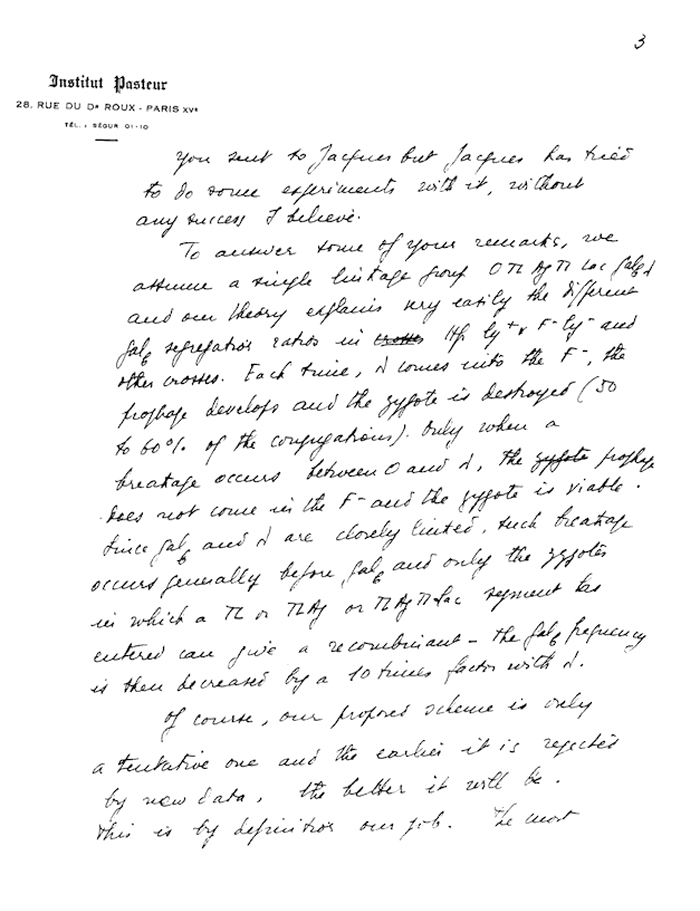 3
Institut Pasteur
28, RUE DU Dr ROUX - PARIS XVe
TÉL. : SÉGUR 01-10
You sent to Jacques but Jacques has tried
to do some experiments with it, without
any success I believe.
To answer some of your remarks, we
assume a single linkage group O TL Az T1 Lac Galb λ
and our theory explains very easily the different
Galb segregation ratios in crosses Hfr ly+ x F- ly- and
other crosses. Each time, λ comes into the F-, the
prophage develops and the zygote is destroyed (50
to 60% of the conjugations). Only when a
breakage occurs between O and λ, the zygote prophage
does not come in the F- and the zygote is viable.
Since Galb and λ are closely linked, such breakage
occurs generally before Galb and only the zygotes
in which a TL or TLAz or TLAzT1Lac segment has
entered can give a recombinant - the Galb frequency
is then decreased by a 10 times factor with λ.
Of course, our proposed scheme is only
a tentative one and the earlier it is rejected
by new data, the better it will be.
This is by definition our job. The most